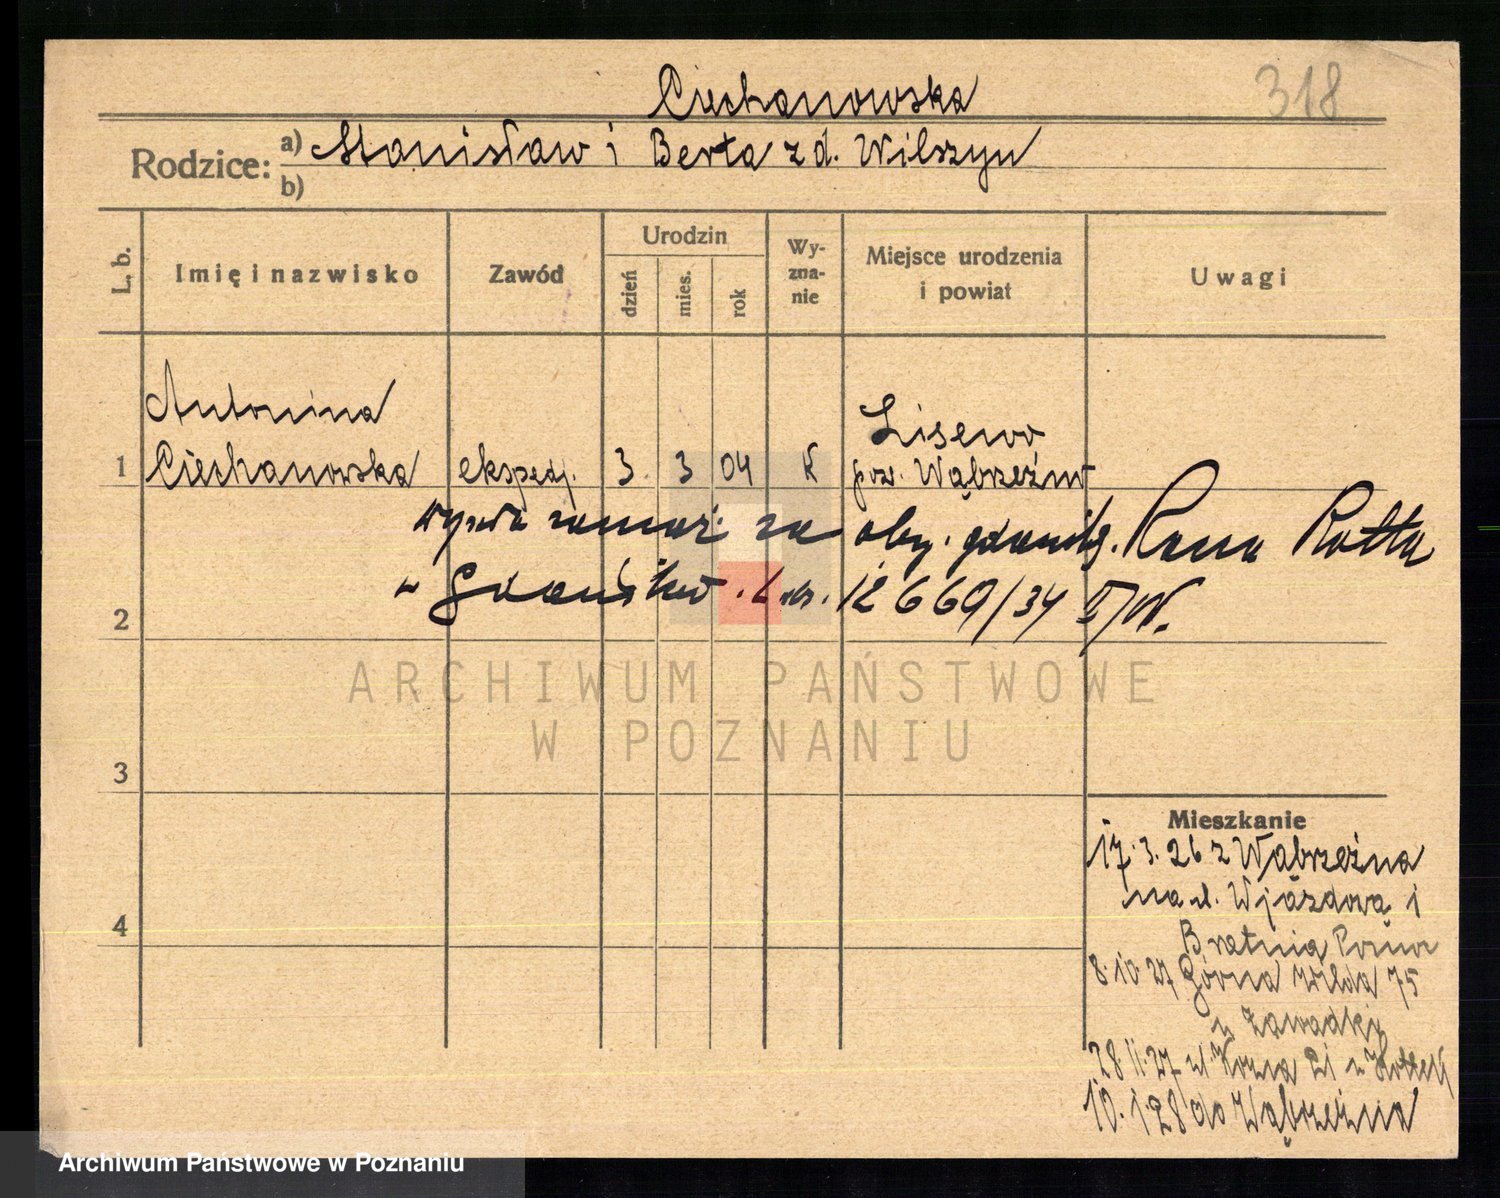 Ciechanowska 318
Rodzice: a) Stanisław i Berta z d. Wilszyn
b)
L. b. Imię i nazwisko Zawód Urodzin dzień mies. rok Wyzna-nie Miejsce urodzenia i powiat Uwagi
Antonina Lisewo
1 Ciechanowska ekspedj. 3. 3 04 K pow. Wąbrzeźno
wyszła zamąż za oby. gdańsk. Rotta
w Gdańsku. 12669/34
2
ARCHIWUM PAŃSTWOWE
W POZNANIU
3
Mieszkanie
17.3.26 z Wąbrzeźna
na ul. Wjazdową i
4
Bratnia
8.10.27 Górna Wilda 75
u Zawadki
28.11.27 ul. Kozia 21 u
10.1.28 do Wąbrzeźna
Archiwum Państwowe w Poznaniu